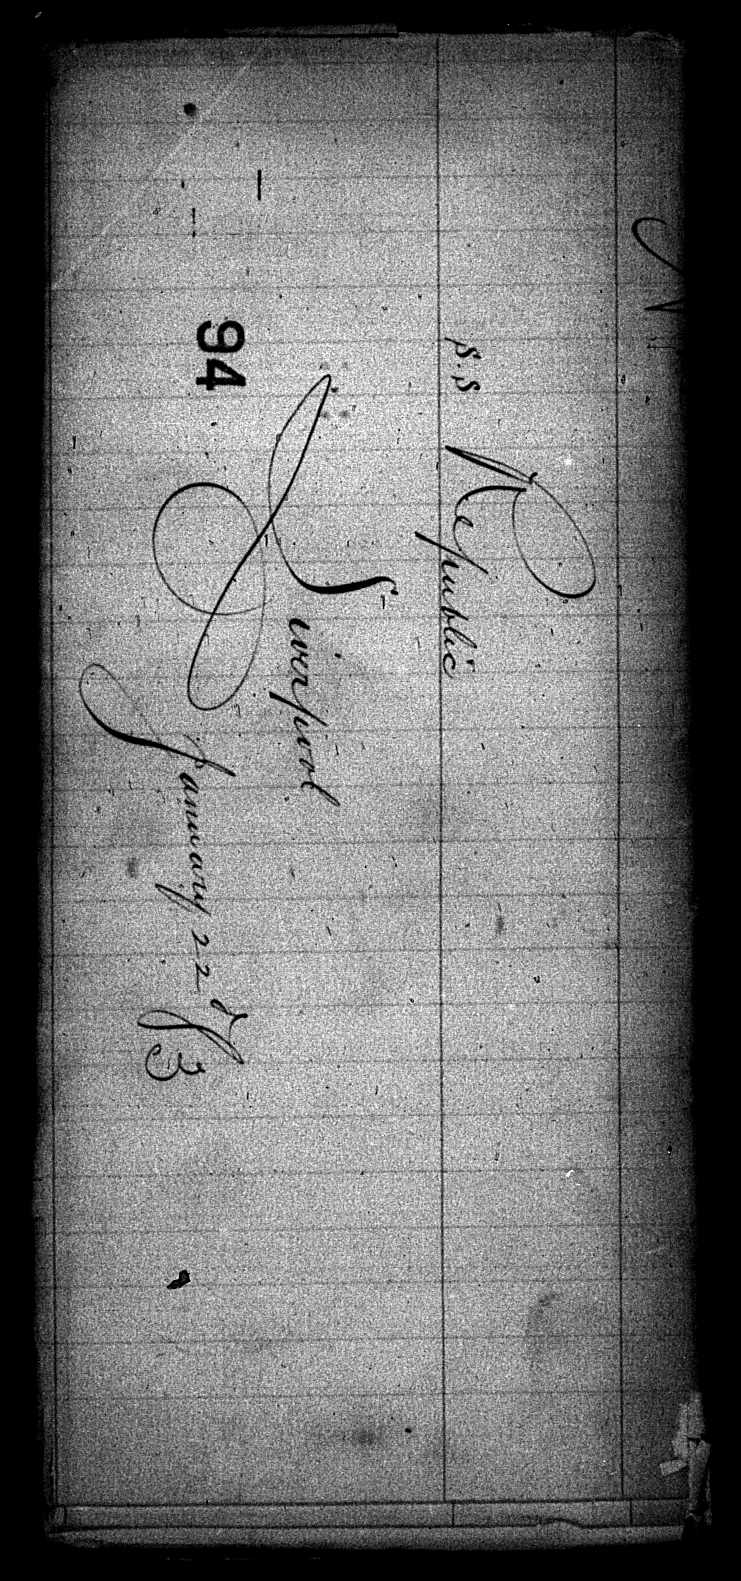 S.S Republic
Liverpool
January 22d/73
94